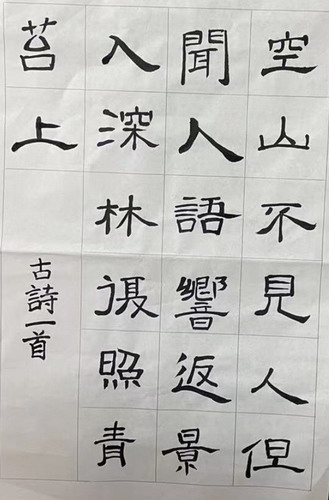 空山不見人但
聞人語響返景
入深林復照青
苔上
古詩一首